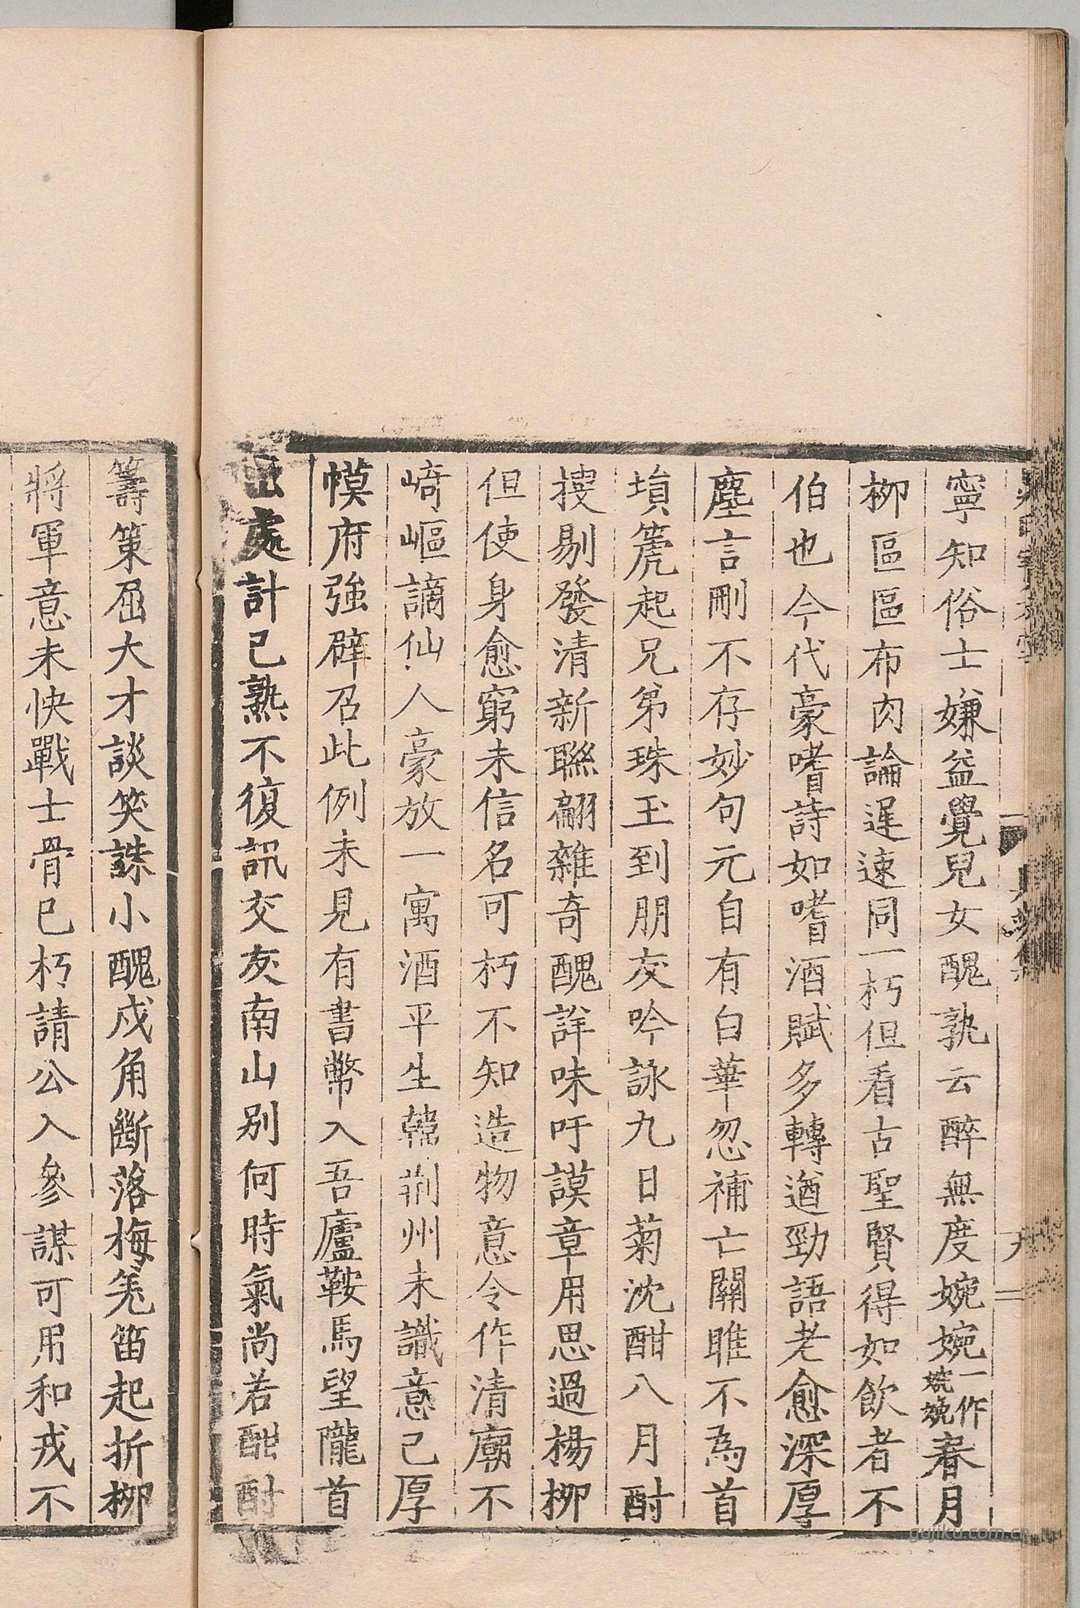 寧知俗士嫌益覺兒女醜孰云醉無度婉婉一作婉娩春月
柳區區布肉論遲速同一朽但看古聖賢得如飲者不
伯也今代豪嗜詩如嗜酒賦多轉遒勁語老愈深厚
塵言刪不存妙句元自有白華忽補亡關雎不為首
塤篪起兄弟珠玉到朋友吟詠九日菊沈酣八月酎
搜剔發清新聯翩雜奇醜詳味吁謨章用思過楊柳
但使身愈窮未信名可朽不知造物意令作清廟不
崎嶇謫仙人豪放一寓酒平生韓荊州未識意已厚
幙府強辟召此例未見有書幣入吾廬鞍馬望隴首
出處計已熟不復訊交友南山別何時氣尚若酣酎
籌策屈大才談笑誅小醜戍角斷落梅羌笛起折柳
將軍意未快戰士骨已朽請公入參謀可用和戎不
九
gujiku.com.cn